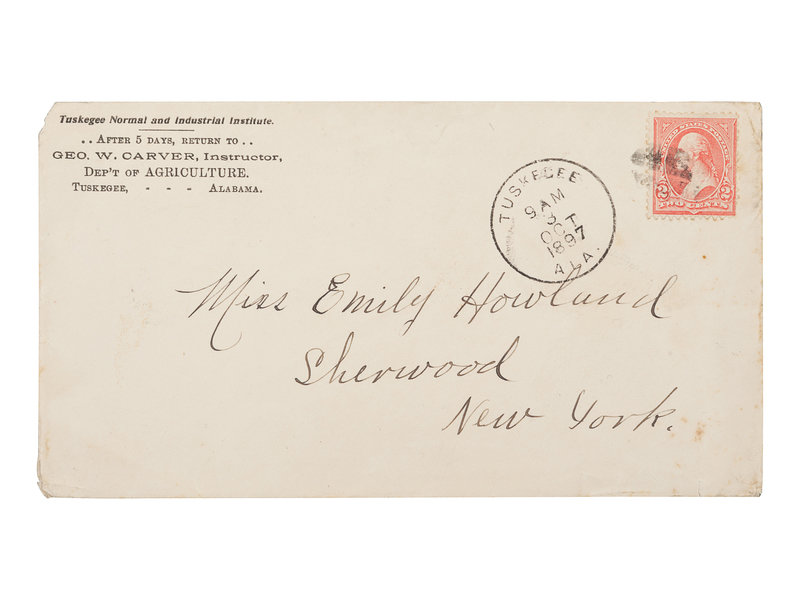 Tuskegee Normal and Industrial Institute.
..AFTER 5 DAYS, RETURN TO..
GEO. W. CARVER, Instructor,
DEP'T OF AGRICULTURE.
TUSKEGEE, - - - ALABAMA.
TUSKEGEE
9 AM
OCT
1897
ALA.
2 2
TWO CENTS
Miss Emily Howland
Sherwood
New York.